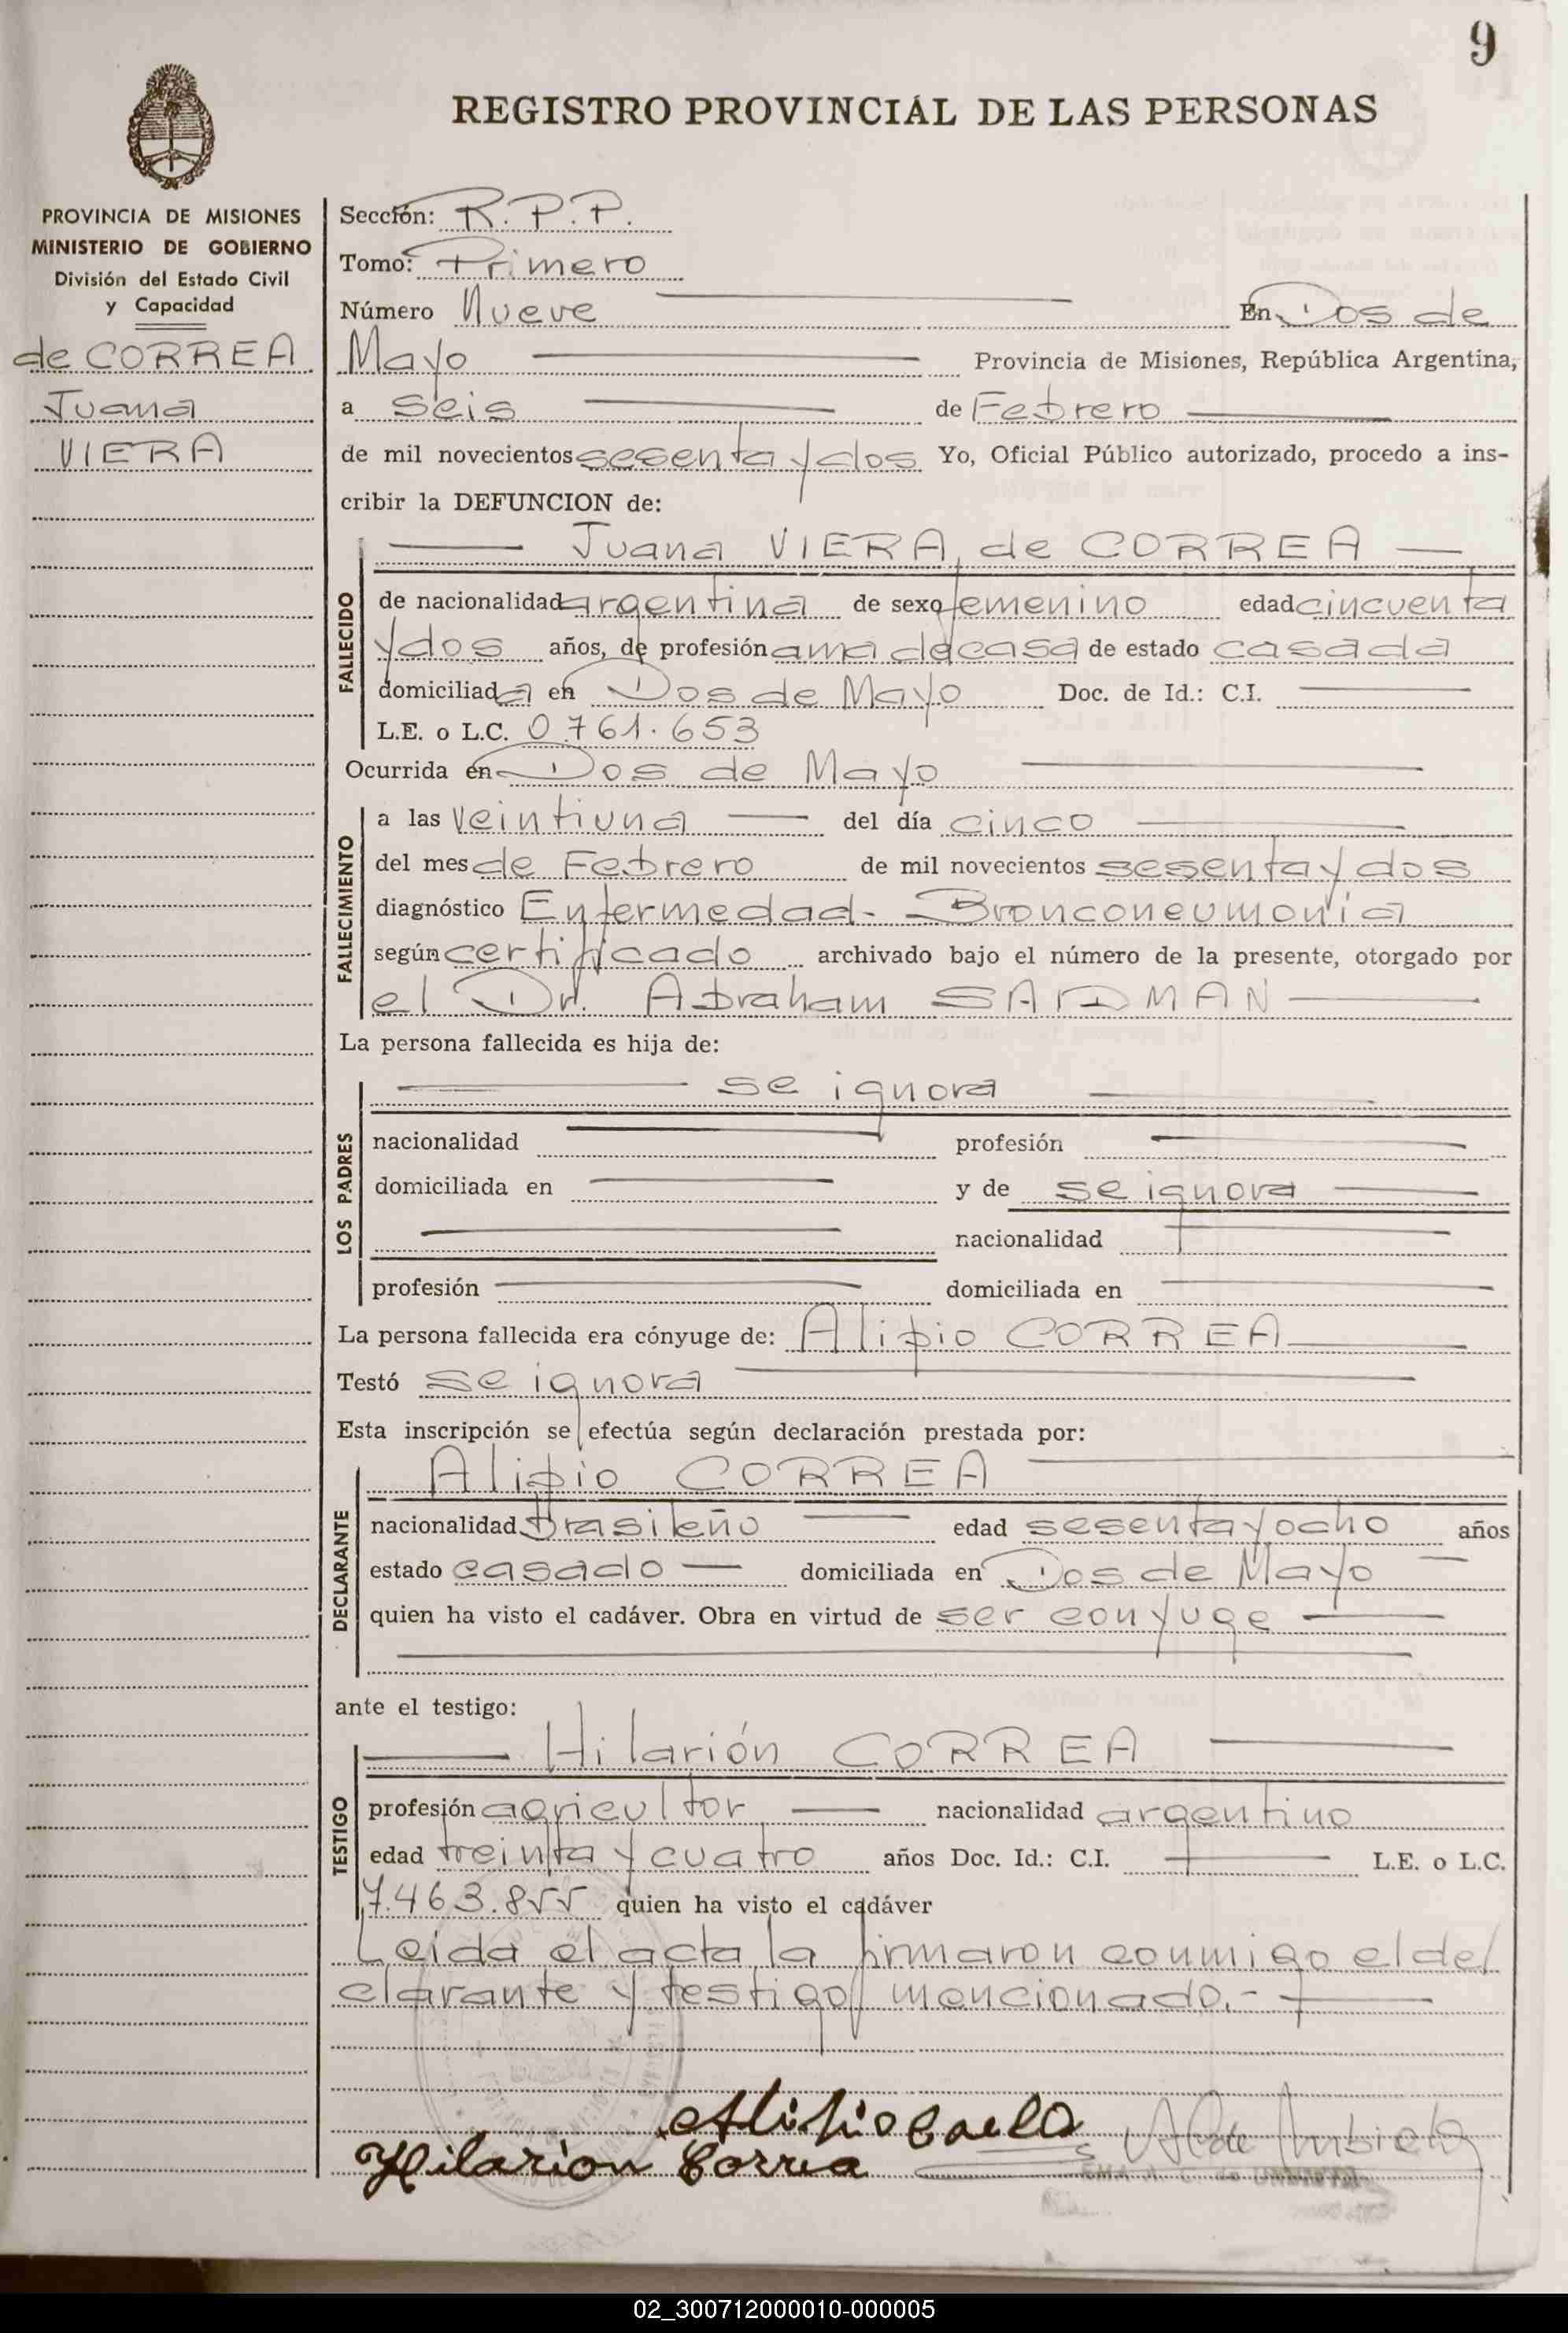 9
REGISTRO PROVINCIAL DE LAS PERSONAS
PROVINCIA DE MISIONES
MINISTERIO DE GOBIERNO
División del Estado Civil
y Capacidad
de CORREA
Juana
VIERA
Sección: R.P.P.
Tomo: Primero
Número Nueve En Dos de
Mayo Provincia de Misiones, República Argentina,
a seis de Febrero
de mil novecientos sesenta y dos Yo, Oficial Público autorizado, procedo a ins-
cribir la DEFUNCION de:
Juana VIERA de CORREA
FALLECIDO
de nacionalidad argentina de sexo femenino edad cincuenta
y dos años, de profesión ama de casa de estado casada
domiciliada en Dos de Mayo Doc. de Id.: C.I.
L.E. o L.C. 0761.653
Ocurrida en Dos de Mayo
FALLECIMIENTO
a las veintiuna del día cinco
del mes de Febrero de mil novecientos sesenta y dos
diagnóstico Enfermedad- Bronconeumonia
según certificado archivado bajo el número de la presente, otorgado por
el Dr. Abraham
La persona fallecida es hija de:
se ignora
LOS PADRES
nacionalidad profesión
domiciliada en y de se ignora
nacionalidad
profesión domiciliada en
La persona fallecida era cónyuge de: Alipio CORREA
Testó se ignora
Esta inscripción se efectúa según declaración prestada por:
Alipio CORREA
DECLARANTE
nacionalidad brasileño edad sesenta y ocho años
estado casado domiciliada en Dos de Mayo
quien ha visto el cadáver. Obra en virtud de ser conyuge
ante el testigo:
Hilarión CORREA
TESTIGO
profesión agricultor nacionalidad argentino
edad treinta y cuatro años Doc. Id.: C.I. L.E. o L.C.
7.463.855 quien ha visto el cadáver
Leida el acta la firmaron conmigo el de/
clarante y testigo mencionado.-
Hilarion Correa
02_300712000010-000005